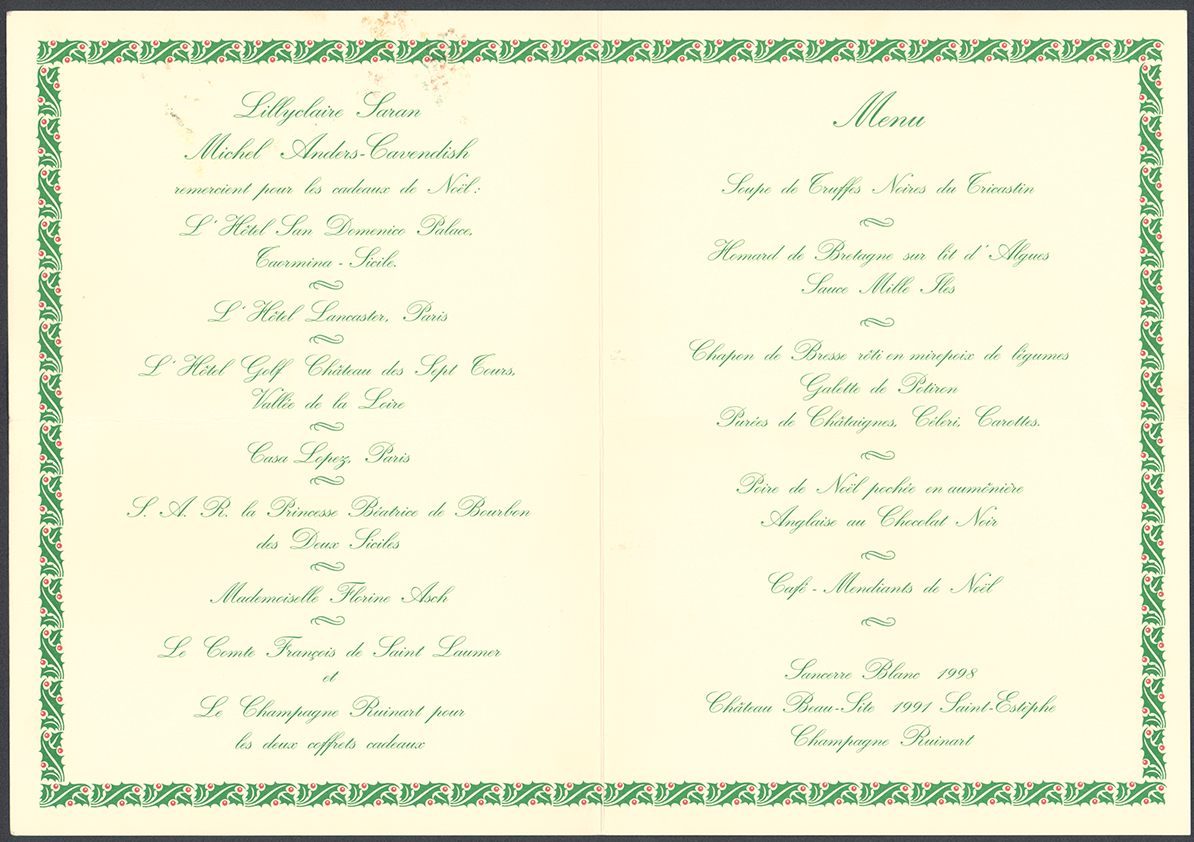 Lillyclaire Saran
Michel Anders-Cavendish
remercient pour les cadeaux de Noël :
L'Hôtel San Domenico Palace,
Taormina - Sicile.
L'Hôtel Lancaster, Paris
L'Hôtel Golf Château des Sept Tours,
Vallée de la Loire
Casa Lopez, Paris
S. A. R. la Princesse Béatrice de Bourbon
des Deux Siciles
Mademoiselle Florine Asch
Le Comte François de Saint Laumer
et
Le Champagne Ruinart pour
les deux coffrets cadeaux
Menu
Soupe de Truffes Noires du Tricastin
Homard de Bretagne sur lit d'Algues
Sauce Mille Iles
Chapon de Bresse rôti en mirepoix de légumes
Galette de Potiron
Purées de Châtaignes, Céleri, Carottes.
Poire de Noël pochée en aumônière
Anglaise au Chocolat Noir
Café - Mendiants de Noël
Sancerre Blanc 1998
Château Beau-Site 1991 Saint-Estèphe
Champagne Ruinart